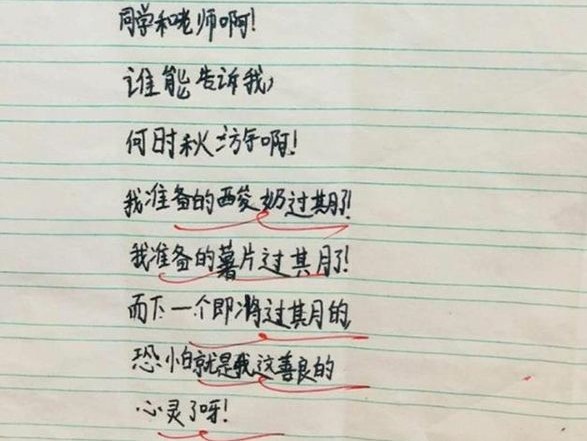 同学和老师啊!
谁能告诉我,
何时秋游啊!
我准备的酸奶过期了!
我准备的薯片过期了!
而下一个即将过期的
恐怕就是我这善良的
心灵了呀!